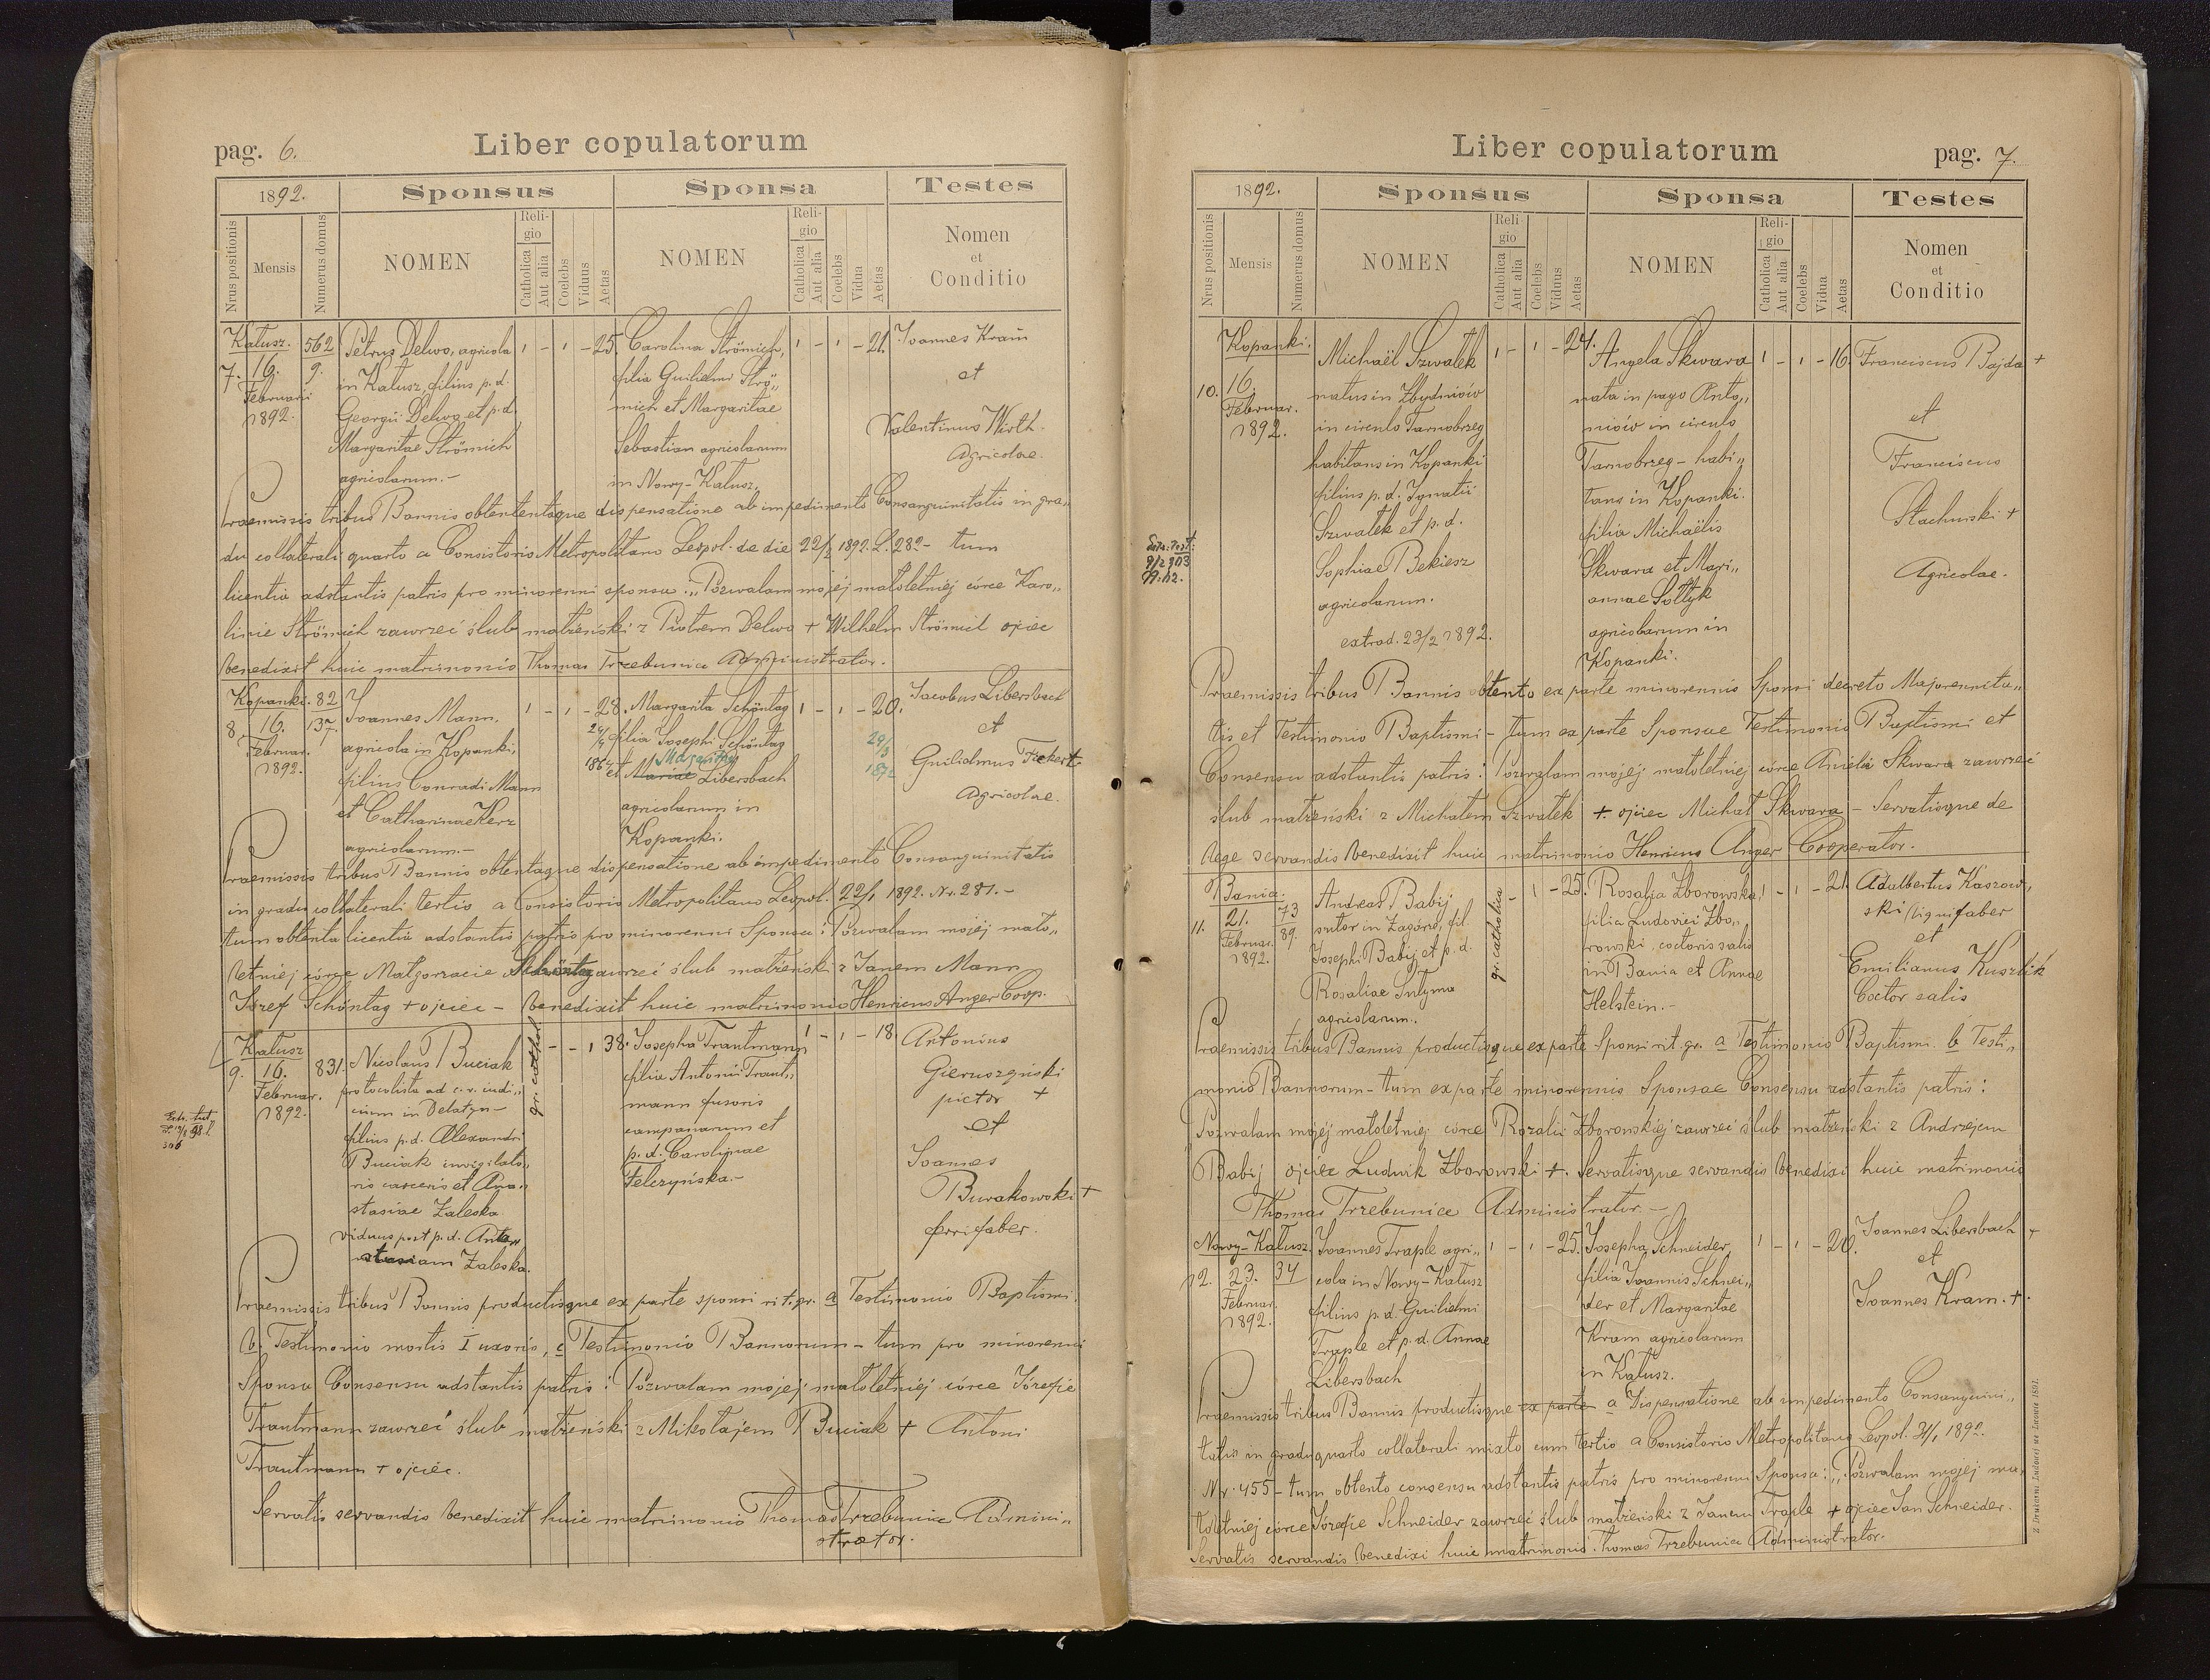 pag. 6.
Liber copulatorum
1892.
Sponsus
Sponsa
Testes
Nrus positionis
Mensis
Numerus domus
NOMEN
Religio
Catholica
Aut alia
Coelebs
Viduus
Aetas
NOMEN
Religio
Catholica
Aut alia
Coelebs
Vidua
Aetas
Nomen
et
Conditio
Kałusz.
7. 16.
Februarii
1892.
562
9.
Petrus Delwo, agricola
in Kałusz, filius p. d.
Georgii Delwo et p. d.
Margaritae Strömich
agricolarum.-
1 - 1 - 25.
Carolina Strömich,
filia Guilielmi Strö„
mich et Margaritae
Sebastian agricolarum
in Nowy-Kałusz.
1 - 1 - 21.
Joannes Kram
et
Valentinus Wirth.
Agricolae.
Praemissis tribus Bannis obtententaque dispensatione ab impedimento Consanguinitatis in gra„
du collaterali quarto a Consistorio Metropolitano Leopol. de die 22/1 1892. L. 282- tum
licentia adstantis patris pro minorenni sponsa: „Pozwalam mojej małoletniej córce Karo„
linie Strömich zawrzeć ślub małżeński z Piotrem Delwo + Wilhelm Strömich ojciec
benedixit huic matrimonio Thomas Trzebunia Administrator.
Kopanki.
8. 16.
Februar.
1892.
82
137.
Joannes Mann,
agricola in Kopanki,
filius Conradi Mann
et Catharinae Kerz
agricolarum.-
1 - 1 - 28.
Margarita Schöntag
filia Josephi Schöntag
Margaritae
et Mariae Libersbach
agricolarum in
Kopanki.
1 - 1 - 20.
Jacobus Libersbach
et
Guilielmus
Agricolae.
Praemissis tribus Bannis obtentaque dispensatione ab impedimento Consanguinitatis
in gradu collaterali tertio a Consistorio Metropolitano Leopol. 22/1 1892. Nr. 281.-
tum obtenta licentia adstantis patris pro minorenni Sponsa: Pozwalam mojej mało„
letniej córce Małgorzacie Schöntag zawrzeć ślub małżeński z Janem Mann
Józef Schöntag + ojciec - benedixit huic matrimonio Henricus Anger Coop.
Kałusz
9. 16.
Februar.
1892.
831.
Nicolaus Buciak
protocolista ad c. r. iudi„
cium in Delatyn-
filius p. d. Alexandri
Buciak invigilato„
ris carceris et Ana„
stasiae Zaleska
viduus post p. d. Ana„
stasiam Zaleska.
gr. cathol.
- - 1 38.
Josepha Trautmann
filia Antonii Traut„
mann fusoris
campanarum et
p. d. Carolinae
Felczyńska.-
1 - 1 - 18.
Antonius
Gieruszyński
pictor +
et
Joannes
Burakowski +
ferrifaber.
Praemissis tribus Bannis productisque ex parte sponsi rit. gr. a Testimonio Baptismi.
b. Testimonio mortis I uxoris, c Testimonio Bannorum - tum pro minorenni
Sponsa Consensu adstantis patris: Pozwalam mojej małoletniej córce Józefie
Trautmann zawrzeć ślub małżeński z Mikołajem Buciak + Antoni
Trautmann + ojciec.
Servatis servandis benedixit huic matrimonio Thomas Trzebunia Admini„
strator.
Liber copulatorum
pag. 7.
1892.
Sponsus
Sponsa
Testes
Nrus positionis
Mensis
Numerus domus
NOMEN
Religio
Catholica
Aut alia
Coelebs
Viduus
Aetas
NOMEN
Religio
Catholica
Aut alia
Coelebs
Vidua
Aetas
Nomen
et
Conditio
Kopanki.
10. 16.
Februar.
1892.
Michaël Szwałek
natus in Zbydniów
in circulo Tarnobrzeg
habitans in Kopanki
filius p. d. Ignatii
Szwałek et p. d.
Sophiae Bekiesz
agricolarum.
extrad. 23/2 1892.
1 - 1 - 24.
Angela Skwara
nata in pago Anto„
niów in circulo
Tarnobrzeg - habi„
tans in Kopanki.
filia Michaëlis
Skwara et Mari„
annae Sołtyk
agricolarum in
Kopanki.
1 - 1 - 16
Franciscus Bajda +
et
Franciscus
Stachurski +
Agricolae.
Praemissis tribus Bannis obtento ex parte minorennis Sponsi decreto Majorennita„
tis et Testimonio Baptismi - tum ex parte Sponsae Testimonio Baptismi et
Consensu adstantis patris: Pozwalam mojej małoletniej córce Anieli Skwara zawrzeć
ślub małżeński z Michałem Szwałek +. ojciec Michał Skwara - Servatisque de
lege servandis benedixit huic matrimonio Henricus Anger Cooperator.
Bania.
11. 21.
Februar.
1892.
73
89.
Andreas Babij
sutor in Zagórze, fil
Josephi Babij et p. d.
Rosaliae Smyma
agricolarum.
gr. catholica
- 1 - 25.
Rosalia Zborowska
filia Ludovici Zbo„
rowski, coctoris salis
in Bania et Annae
Helstein.-
1 - 1 - 21
Adalbertus Kaszow„
ski lignifaber
et
Emilianus Kuszlik
Coctor salis
Praemissis tribus Bannis productisque ex parte Sponsi rit. gr. a Testimonio Baptismi b Testi„
monio Bannorum - tum ex parte minorennis Sponsae Consensu adstantis patris:
Pozwalam mojej małoletniej córce Rozalii Zborowskiej zawrzeć ślub małżeński z Andrzejem
Babij ojciec Ludwik Zborowski +. Servatisque servandis benedixi huic matrimonio
Thomas Trzebunia Administrator.-
Nowy-Kałusz.
12. 23.
Februar.
1892.
34
Joannes Traple agri„
cola in Nowy-Kałusz
filius p. d. Guilielmi
Traple et p. d. Annae
Libersbach
1 - 1 - 25.
Josepha Schneider
filia Joannis Schnei„
der et Margaritae
Kram agricolarum
in Kałusz.
1 - 1 - 20.
Joannes Libersbach +
et
Joannes Kram. +.
Praemissis tribus Bannis productisque ex parte a Dispensatione ab impedimento Consanguini„
tatis in gradu quarto collaterali mixto cum tertio a Consistorio Metropolitano Leopol. 31/1 1892.
Nr. 455 - tum obtento consensu adstantis patris pro minorenni Sponsa: „Pozwalam mojej ma„
łoletniej córce Józefie Schneider zawrzeć ślub małżeński z Janem Traple + ojciec Jan Schneider.
Servatis servandis benedixi huic matrimonio. Thomas Trzebunia Administrator.
Z Drukarni Ludowej we Lwowie 1891.